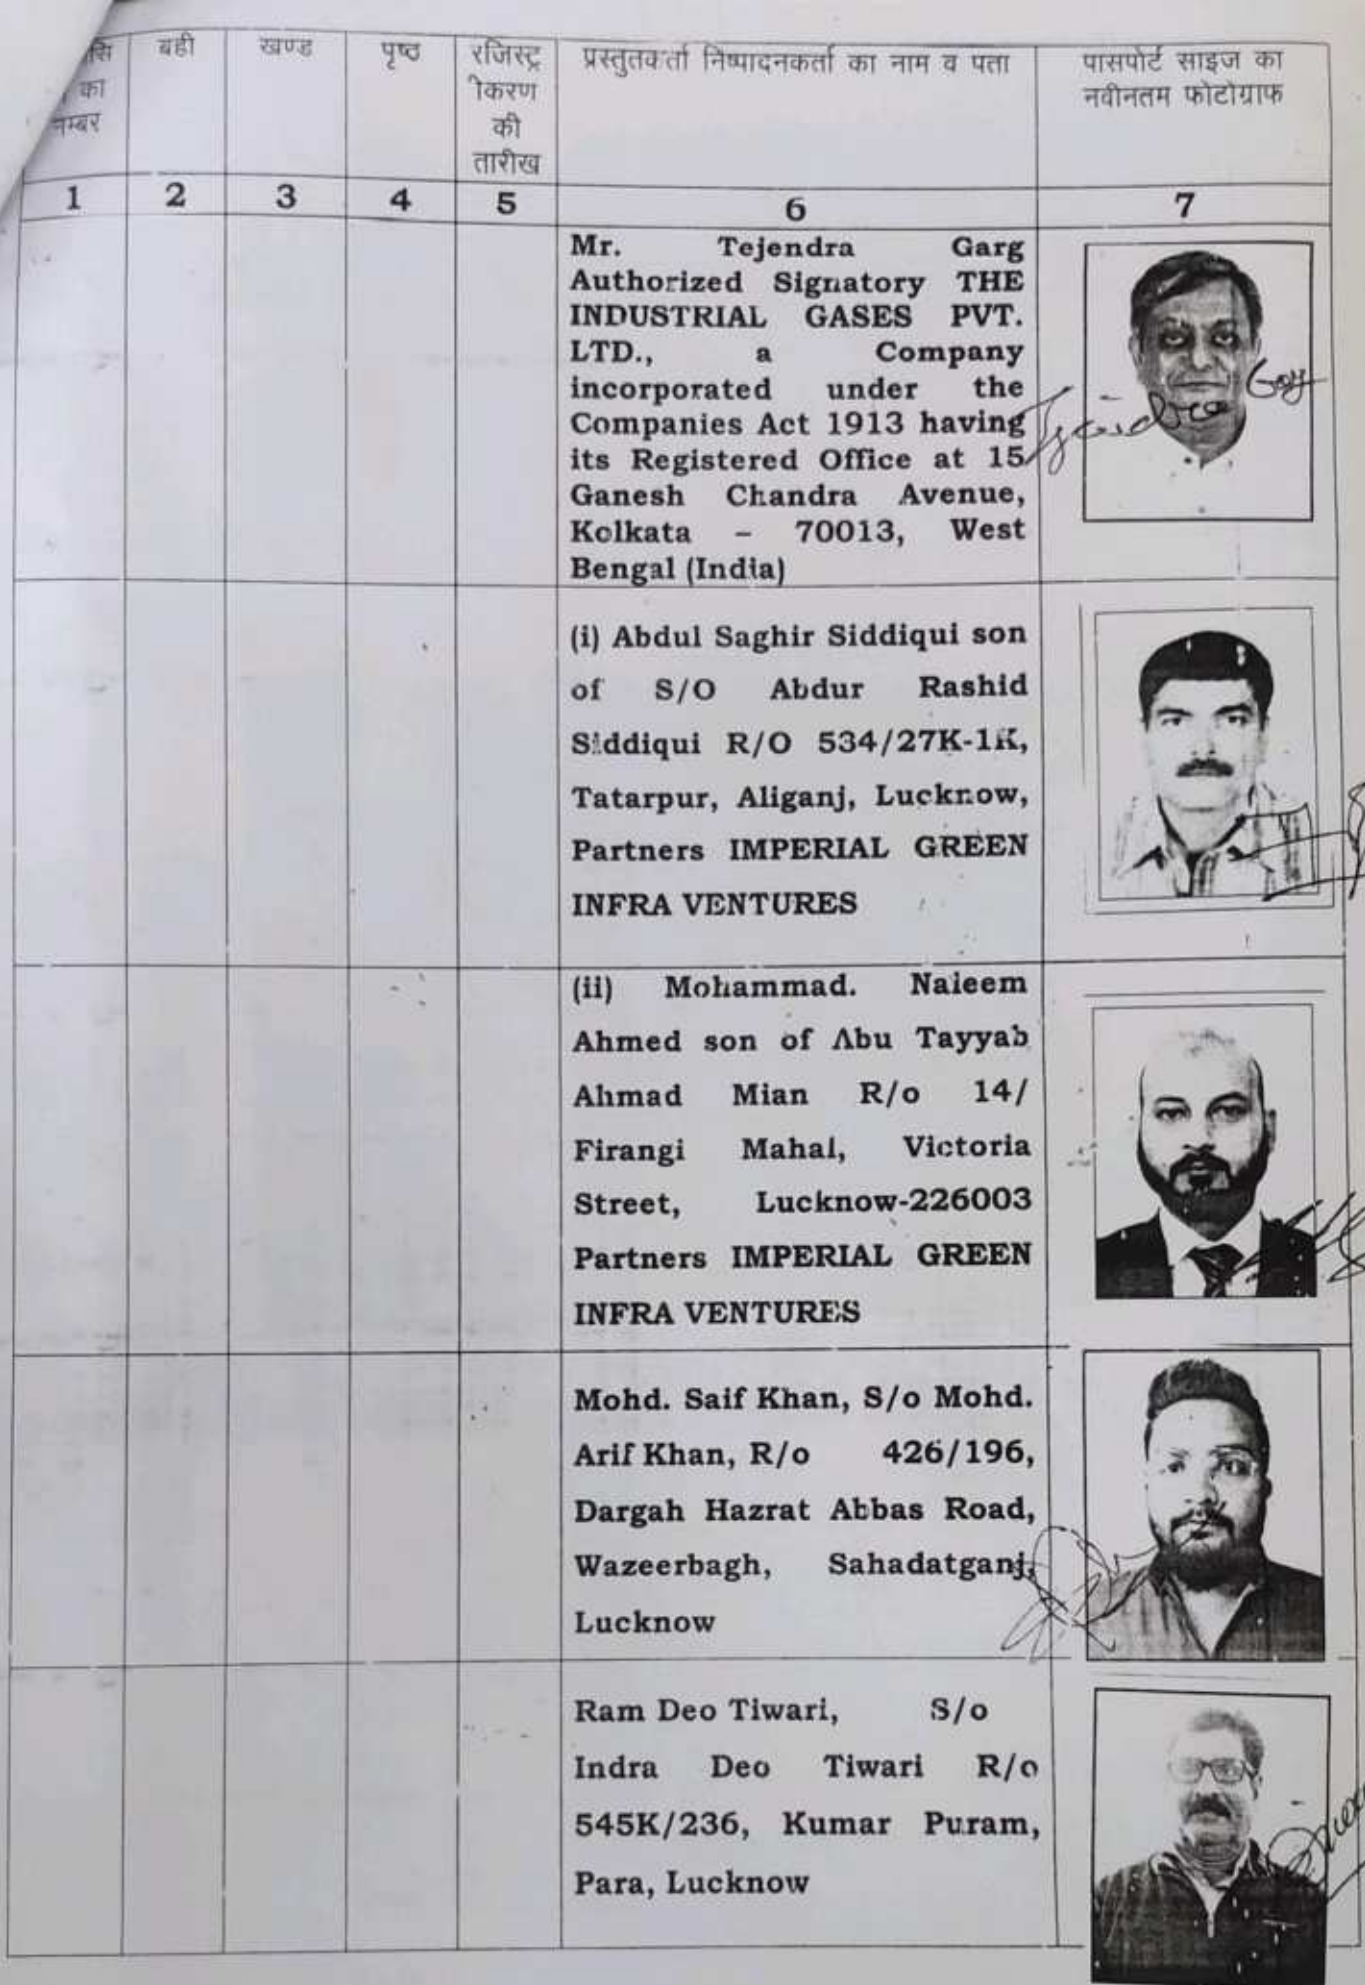 बही
खण्ड
पृष्ठ
रजिस्ट्
रीकरण
की
तारीख
प्रस्तुतकर्ता निष्पादनकर्ता का नाम व पता
पासपोर्ट साइज का
नवीनतम फोटोग्राफ
का
नम्बर
1 2 3 4 5 6 7
Mr. Tejendra Garg
Authorized Signatory THE
INDUSTRIAL GASES PVT.
LTD., a Company
incorporated under the
Companies Act 1913 having
its Registered Office at 15
Ganesh Chandra Avenue,
Kolkata – 70013, West
Bengal (India)
(i) Abdul Saghir Siddiqui son
of S/O Abdur Rashid
Siddiqui R/O 534/27K-1K,
Tatarpur, Aliganj, Lucknow,
Partners IMPERIAL GREEN
INFRA VENTURES
(ii) Mohammad. Naieem
Ahmed son of Abu Tayyab
Ahmad Mian R/o 14/
Firangi Mahal, Victoria
Street, Lucknow-226003
Partners IMPERIAL GREEN
INFRA VENTURES
Mohd. Saif Khan, S/o Mohd.
Arif Khan, R/o 426/196,
Dargah Hazrat Abbas Road,
Wazeerbagh, Sahadatganj,
Lucknow
Ram Deo Tiwari, S/o
Indra Deo Tiwari R/o
545K/236, Kumar Puram,
Para, Lucknow